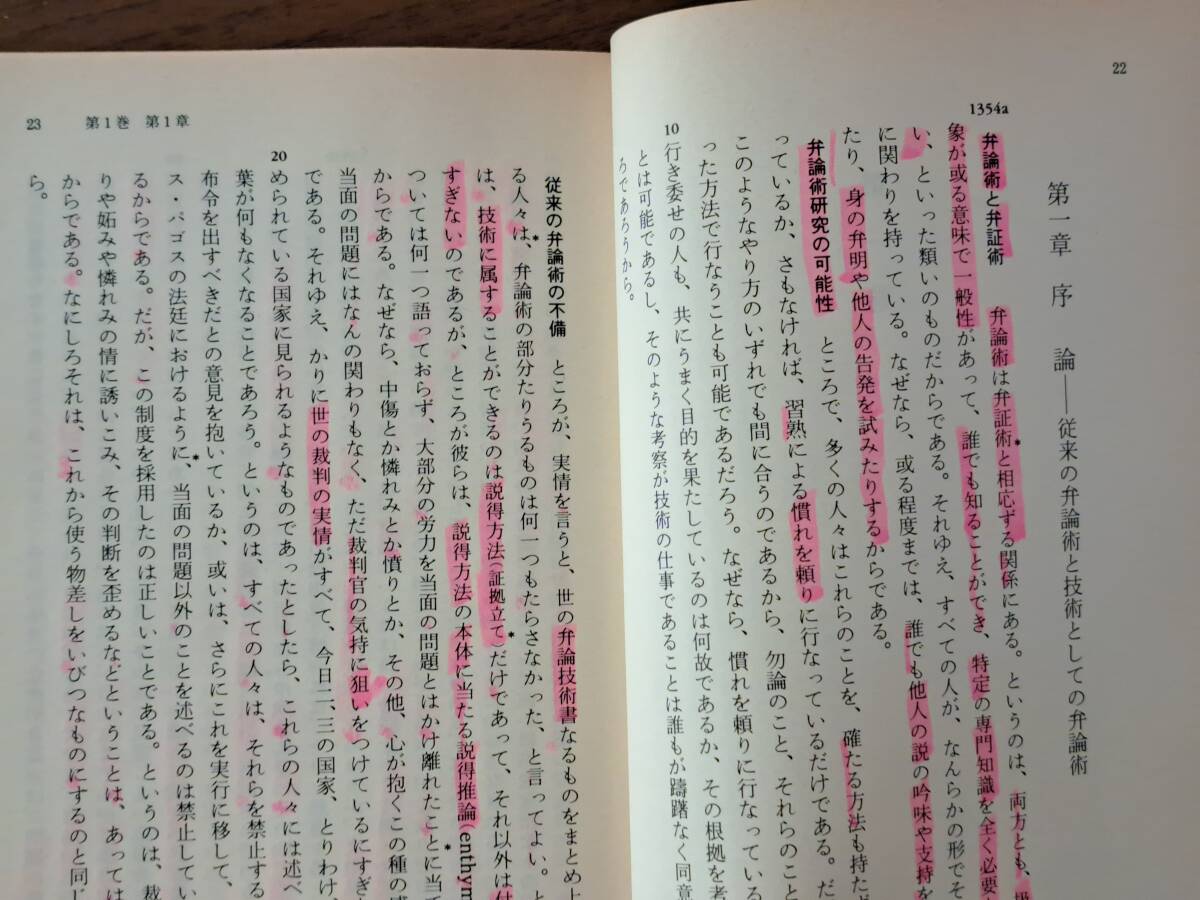 22
1354a
第一章 序 論——従来の弁論術と技術としての弁論術
弁論術と弁証術 弁論術は弁証術*と相応ずる関係にある。というのは、両方とも、
象が或る意味で一般性があって、誰でも知ることができ、特定の専門知識を全く必要
い、といった類いのものだからである。それゆえ、すべての人が、なんらかの形でそ
に関わりを持っている。なぜなら、或る程度までは、誰でも他人の説の吟味や支持を
たり、身の弁明や他人の告発を試みたりするからである。
弁論術研究の可能性 ところで、多くの人々はこれらのことを、確たる方法も持たず
っているか、さもなければ、習熟による慣れを頼りに行なっているだけである。だ
このようなやり方のいずれでも間に合うのであるから、勿論のこと、それらのこと
った方法で行なうことも可能であるだろう。なぜなら、慣れを頼りに行なっている
10
行き委せの人も、共にうまく目的を果たしているのは何故であるか、その根拠を考
とは可能であるし、そのような考察が技術の仕事であることは誰もが躊躇なく同意
ろであろうから。
23 第1巻 第1章
従来の弁論術の不備 ところが、実情を言うと、世の弁論技術書なるものをまとめ上
る人々は*、弁論術の部分たりうるものは何一つもたらさなかった、と言ってよい。と
は、技術に属することができるのは説得方法(証拠立て)*だけであって、それ以外は付
すぎないのであるが、ところが彼らは、説得方法の本体に当たる説得推論(enthym
ついては何一つ語っておらず、大部分の労力を当面の問題とはかけ離れたことに*当て
からである。なぜなら、中傷とか憐れみとか憤りとか、その他、心が抱くこの種の感
当面の問題にはなんの関わりもなく、ただ裁判官の気持に狙いをつけているにすぎ
である。それゆえ、かりに世の裁判の実情がすべて、今日二、三の国家、とりわけ
20
められている国家に見られるようなものであったとしたら、これらの人々には述べ
葉が何もなくなることであろう。というのは、すべての人々は、それらを禁止する
布令を出すべきだとの意見を抱いているか、或いは、さらにこれを実行に移して、
ス・パゴスの法廷におけるように*、当面の問題以外のことを述べるのは禁止してい
るからである。だが、この制度を採用したのは正しいことである。というのは、裁
りや妬みや憐れみの情に誘いこみ、その判断を歪めるなどということは、あっては
からである。なにしろそれは、これから使う物差しをいびつなものにするのと同じ
ら。